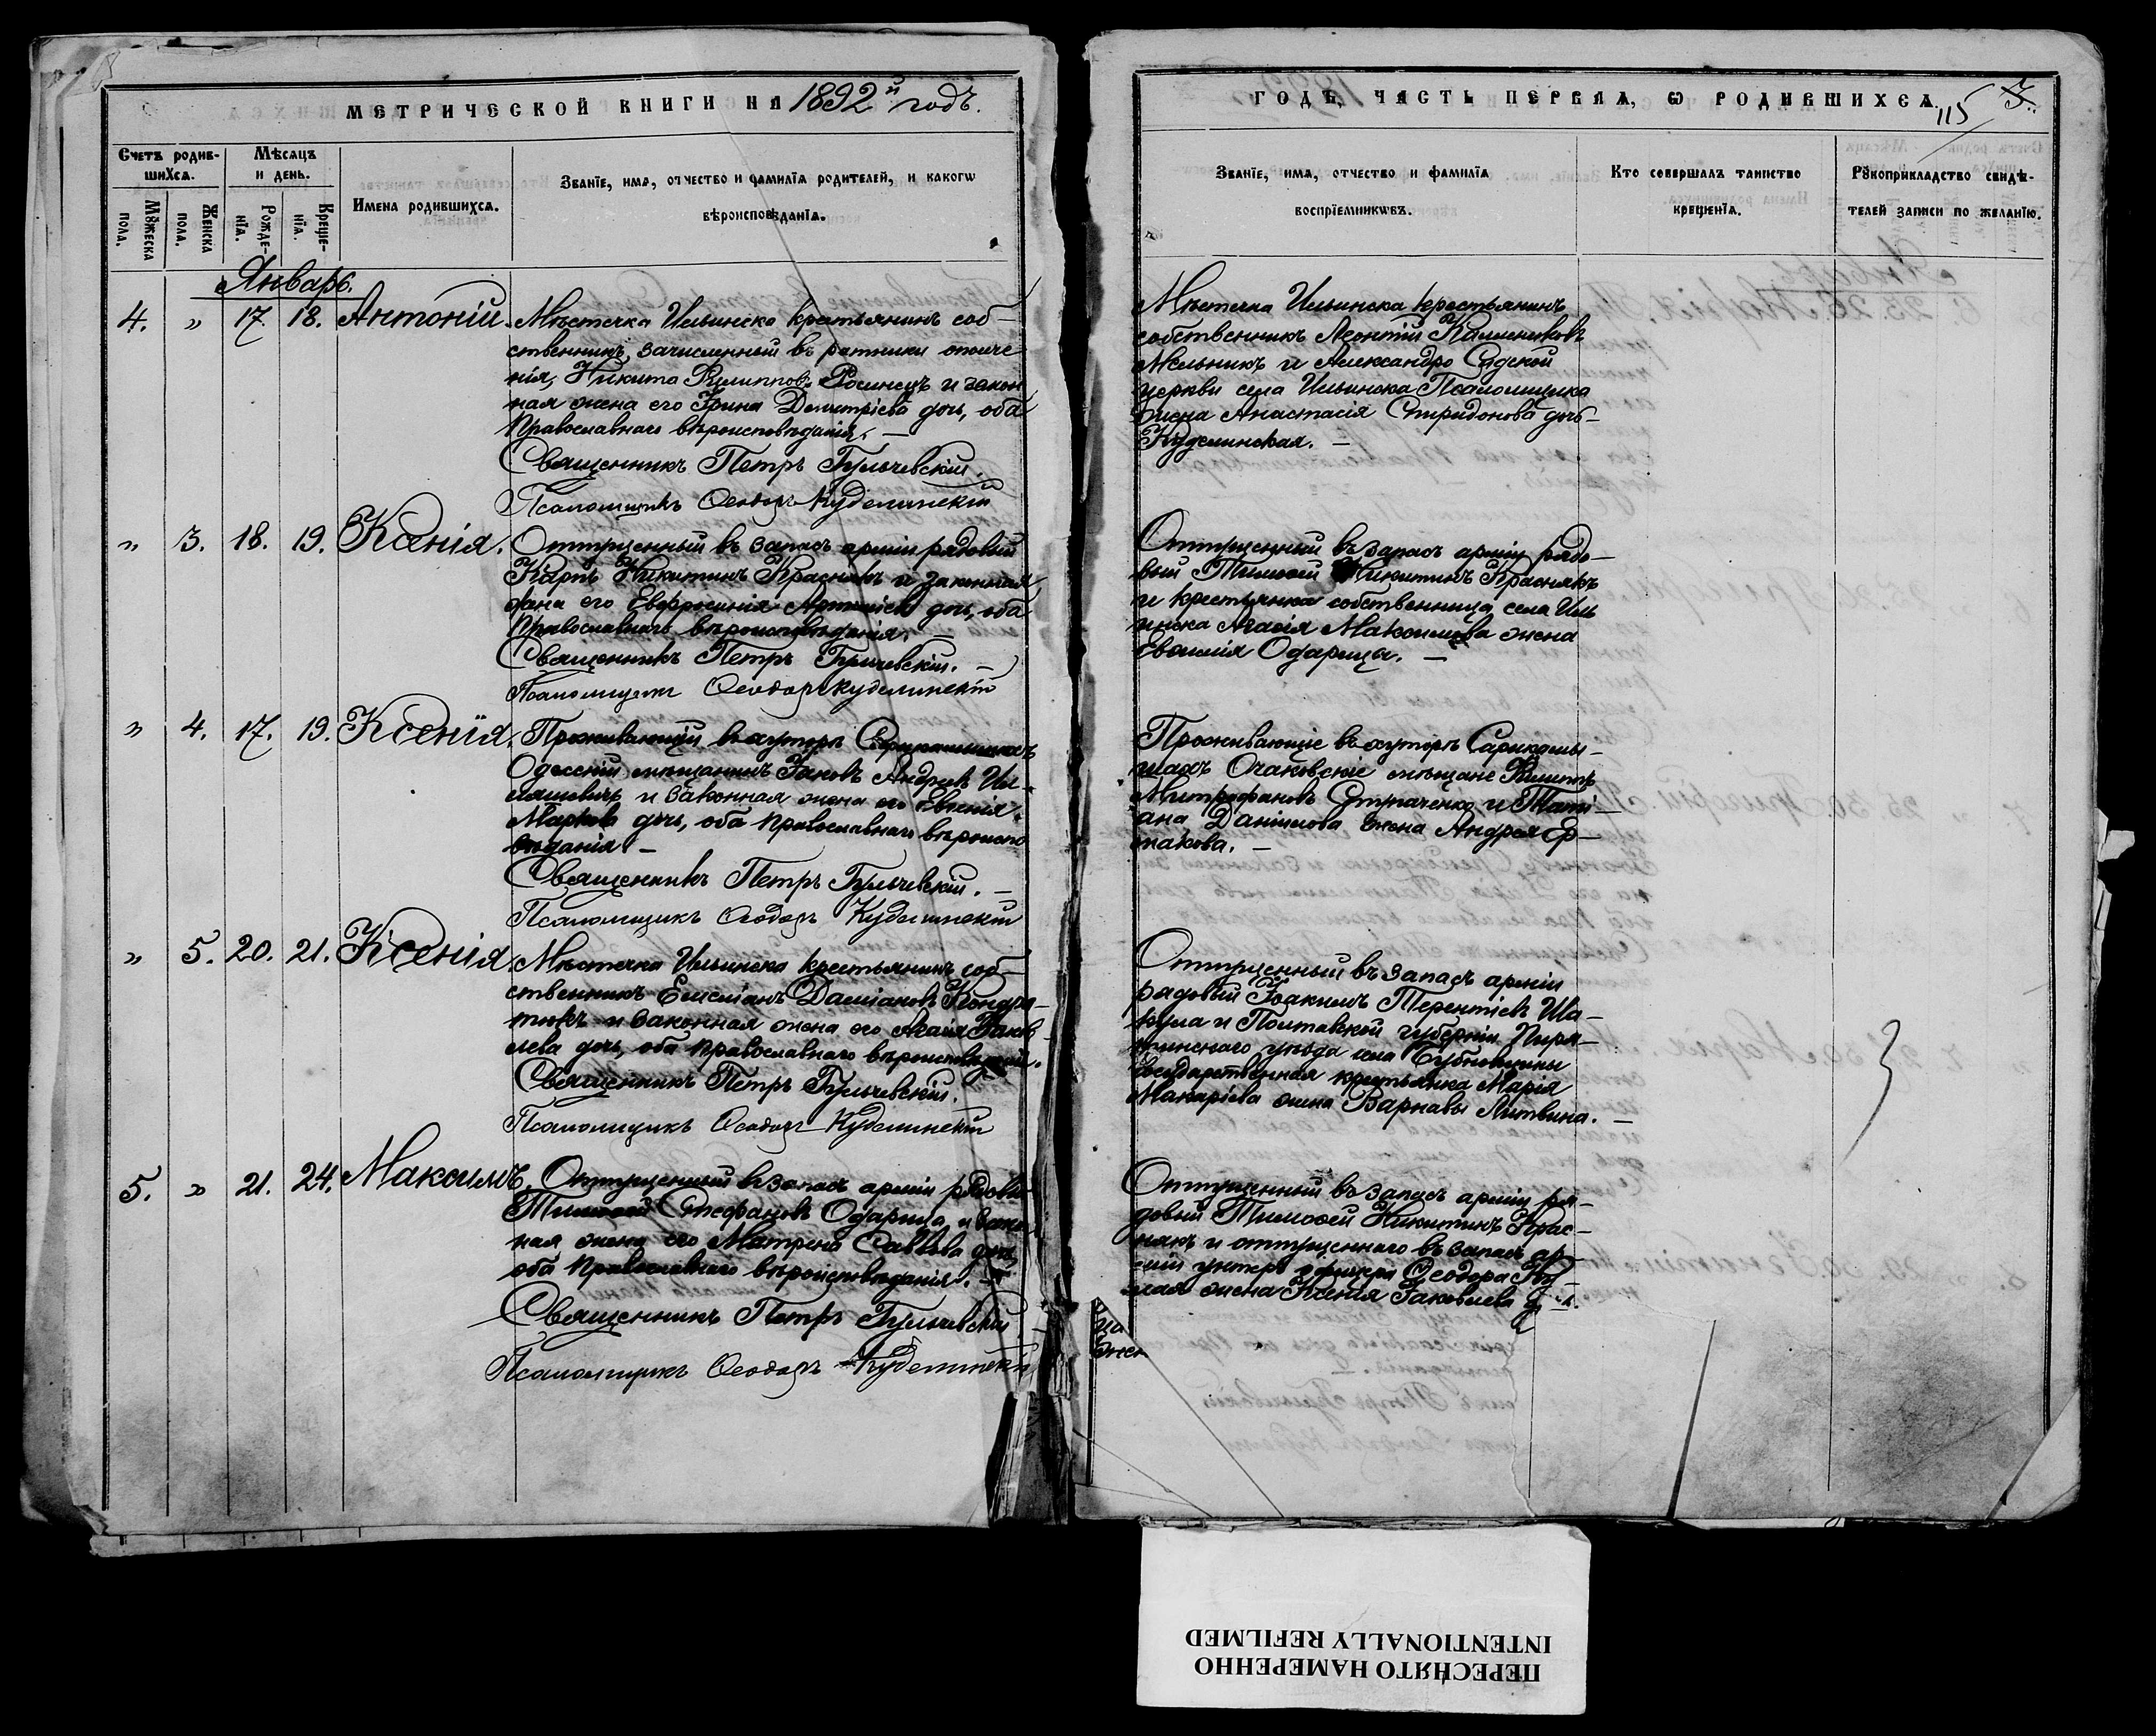 МЕТРИЧЕСКОЙ КНИГИ НА 1892й годъ.
Счетъ родив-
шихся.
Мѣсяцъ
и день.
Имена родившихся.
Званіе, имя, отчество и фамилія родителей, и какогѡ
вѣроисповѣданія.
Мꙋжеска
пола.
Женска
пола.
Рожде-
нія.
Креще-
нія.
Январь.
4. „ 17. 18. Антоній. Мѣстечка Ильинска крестьянинъ соб-
ственникъ, зачисленный въ ратники ополче
нія, Никита Филипповъ Росинецъ и закон
ная жена его Ірина Димитріева дочь, оба
Православнаго вѣроисповѣданія. —
Священникъ Петръ Бульчевскій.
Псаломщикъ Ѳеодоръ Куделинскій
„ 3. 18. 19. Ксенія. Отпущенный въ запасъ арміи рядовый
Карпъ Никитинъ Краснякъ и законная
жена его Евфросинія дочь, оба
Православнаго вѣроисповѣданія. —
Священникъ Петръ Бульчевскій. —
Псаломщикъ Ѳеодоръ Куделинскій
„ 4. 17. 19. Ксенія. Проживающій въ хуторѣ
Одесскій мѣщанинъ Іаковъ Андреевъ Ил-
ляшевичъ и законная жена его Евгенія
Маркова дочь, оба Православнаго вѣроиспо
вѣданія. —
Священникъ Петръ Бульчевскій. —
Псаломщикъ Ѳеодоръ Куделинскій
„ 5. 20. 21. Ксенія. Мѣстечка Ильинска крестьянинъ соб-
ственникъ Емиліанъ Даміановъ Кондра-
тюкъ и законная жена его Агаѳія Іаков
лева дочь, оба Православнаго вѣроисповѣданія.
Священникъ Петръ Бульчевскій.
Псаломщикъ Ѳеодоръ Куделинскій
5. „ 21. 24. Максимъ. Отпущенный въ запасъ арміи рядовый
Тимоѳей Стефановъ Одарица, и закон
ная жена его Матрена Саввова дочь,
оба Православнаго вѣроисповѣданія. —
Священникъ Петръ Бульчевскій
Псаломщикъ Ѳеодоръ Куделинскій
ГОДЪ, ЧАСТЬ ПЕРВАЯ, Ѡ РОДИВШИХСЯ.
115 3.
Званіе, имя, отчество и фамилія
воспріемникѡвъ.
Кто совершалъ таинство
крещенія.
Рꙋкоприкладство свидѣ-
телей записи по желанію.
Мѣстечка Ильинска крестьянинъ
собственникъ Леонтій Каллениковъ
Мельникъ и Александро Садской
церкви села Ильинска Псаломщика
жена Анастасія Спиридонова дочь
Куделинская. —
Отпущенный въ запасъ арміи рядо-
вый Тимоѳей Никитинъ Краснякъ
и крестьянка собственница, села Иль
инска Агаѳія Максимова жена
Евѳимія Одарицы. —
Проживающіе въ хуторѣ Сарикамы-
шахъ Очаковскіе мѣщане Филиппъ
Митрофановъ Стрпаченко и Тати-
ана Даніилова жена Андрея Ер-
макова. —
Отпущенный въ запасъ арміи
рядовый Іоакимъ Терентіевъ Ша-
кула и Полтавской губерніи Пиря-
тинскаго уѣзда села Бубновщины
Государственная крестьянка Марія
Макаріева жена Варнавы Литвина. —
Отпущенный въ запасъ арміи ря-
довый Тимоѳей Никитинъ Крас-
някъ и отпущеннаго въ запасъ ар-
міи унтеръ офицера Ѳеодора
жена Ксенія Іаковлева
ПЕРЕСНЯТО НАМЕРЕННО
INTENTIONALLY REFILMED